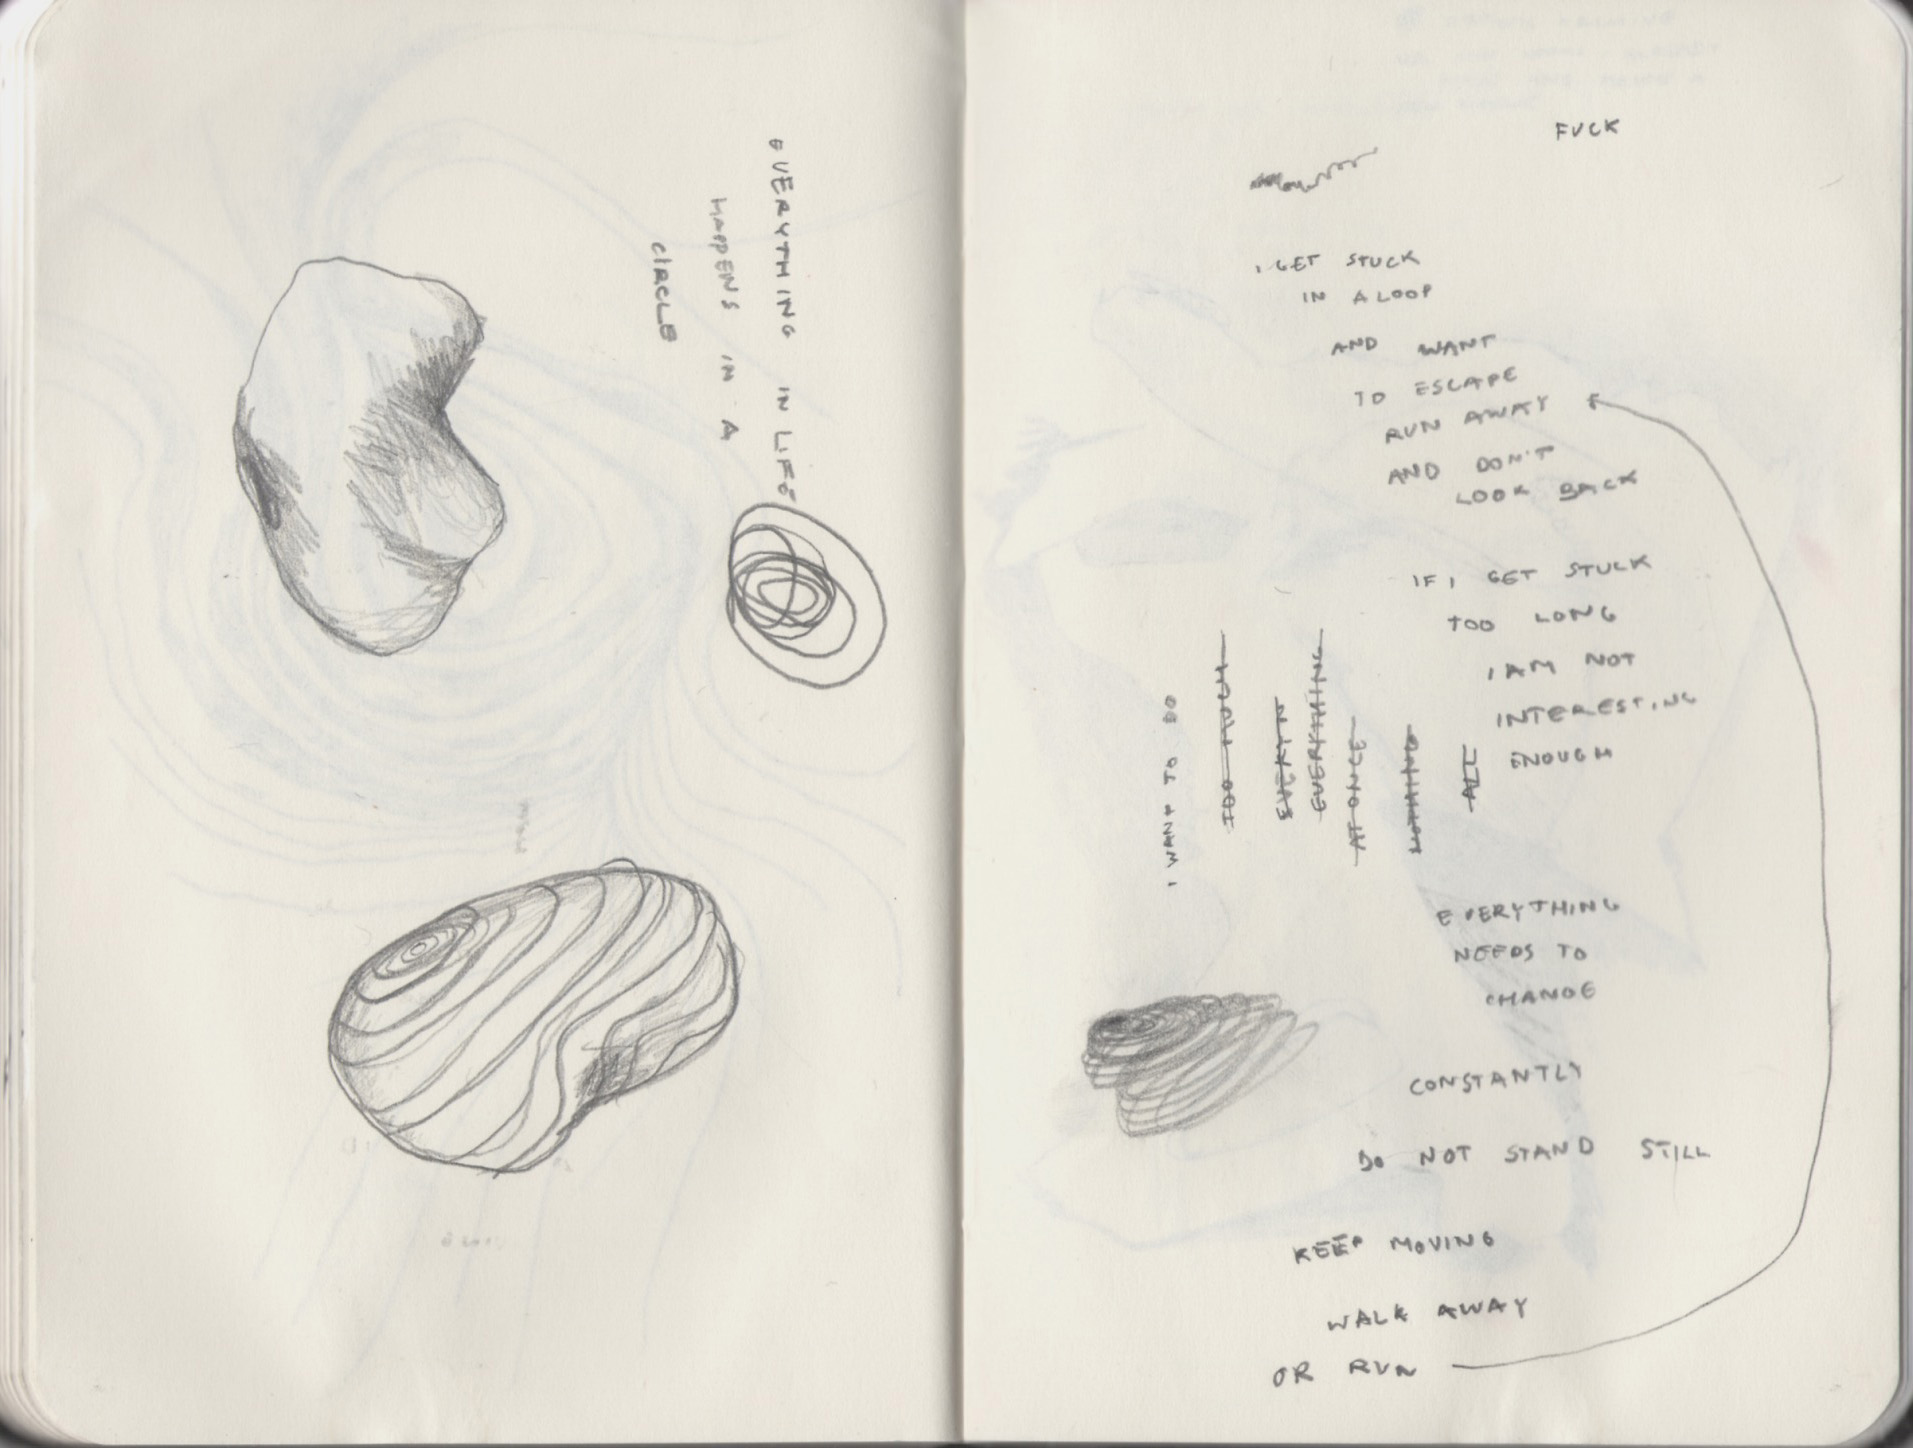 EVERYTHING IN LIFE
HAPPENS IN A
CIRCLE
FUCK
I GET STUCK
IN A LOOP
AND WANT
TO ESCAPE
RUN AWAY
AND DON'T
LOOK BACK
IF I GET STUCK
TOO LONG
I AM NOT
INTERESTING
ENOUGH
I WANT TO DO
TOO MUCH
EVERYTHING
AT ONCE
NOTHING
ALL
EVERYTHING
NEEDS TO
CHANGE
CONSTANTLY
DO NOT STAND STILL
KEEP MOVING
WALK AWAY
OR RUN